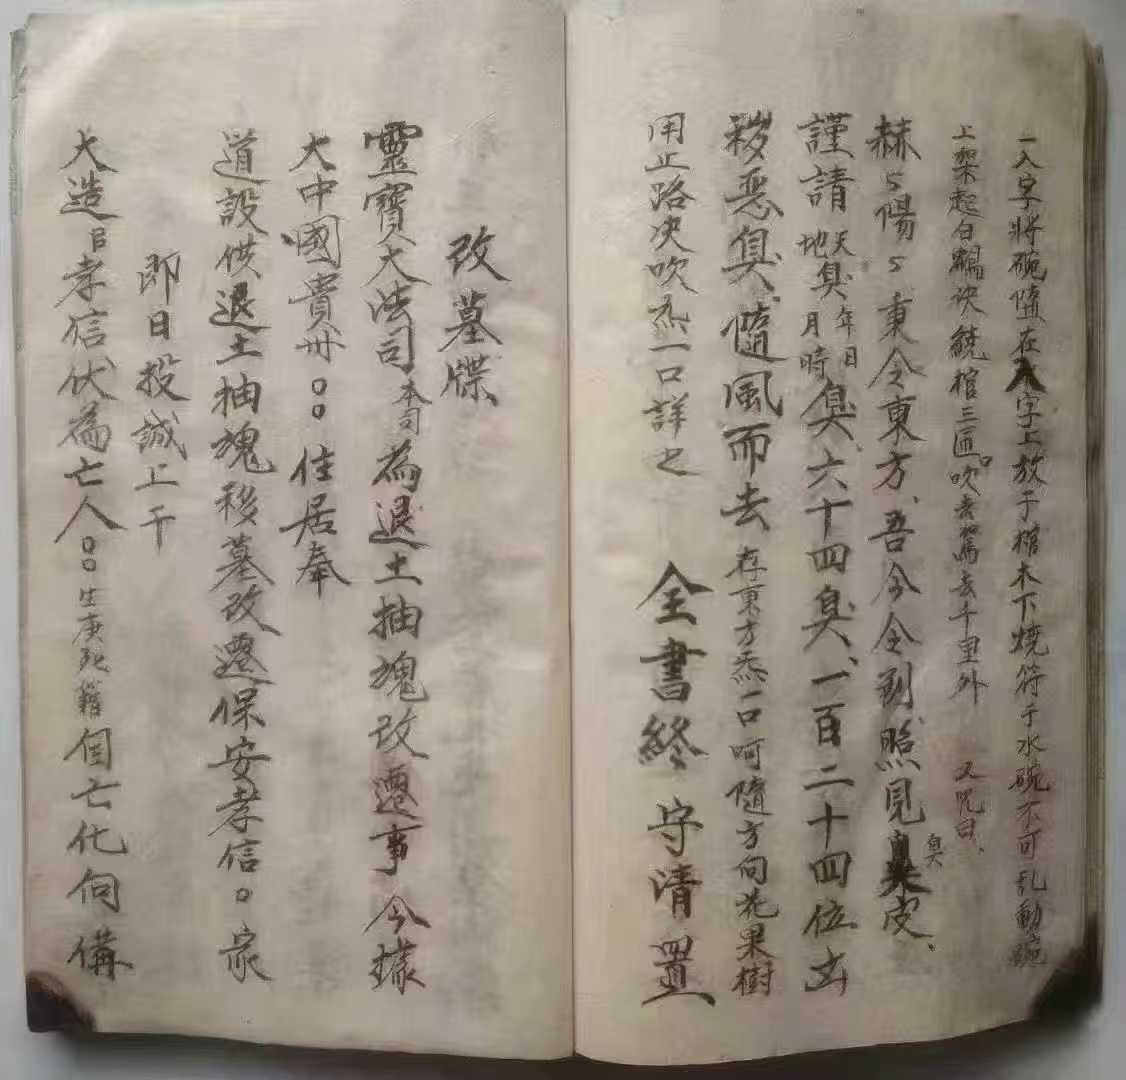 一入字將碗隨在入字上放于棺木下燒符于水碗不可乱動碗
上架起白鶴訣繞棺三匝吹去篤去千里外 又咒曰、
赫ㄣ陽ㄣ東令東方、吾今令到照見臭皮、
謹請天地臭年月日時臭、六十四臭、一百二十四位凶
穢恶臭、隨風而去 存東方炁一口呵隨方向花果樹
用止路决吹炁一口詳之 全書終 守清置
改墓牒
靈寶大法司本司為退土抽塊改遷事今據
大中國貴州○○住居奉
道設供退土抽塊移墓改遷保安孝信○家
即日投誠上干
大造言孝信伏為亡人○○生庚死籍個亡化向備